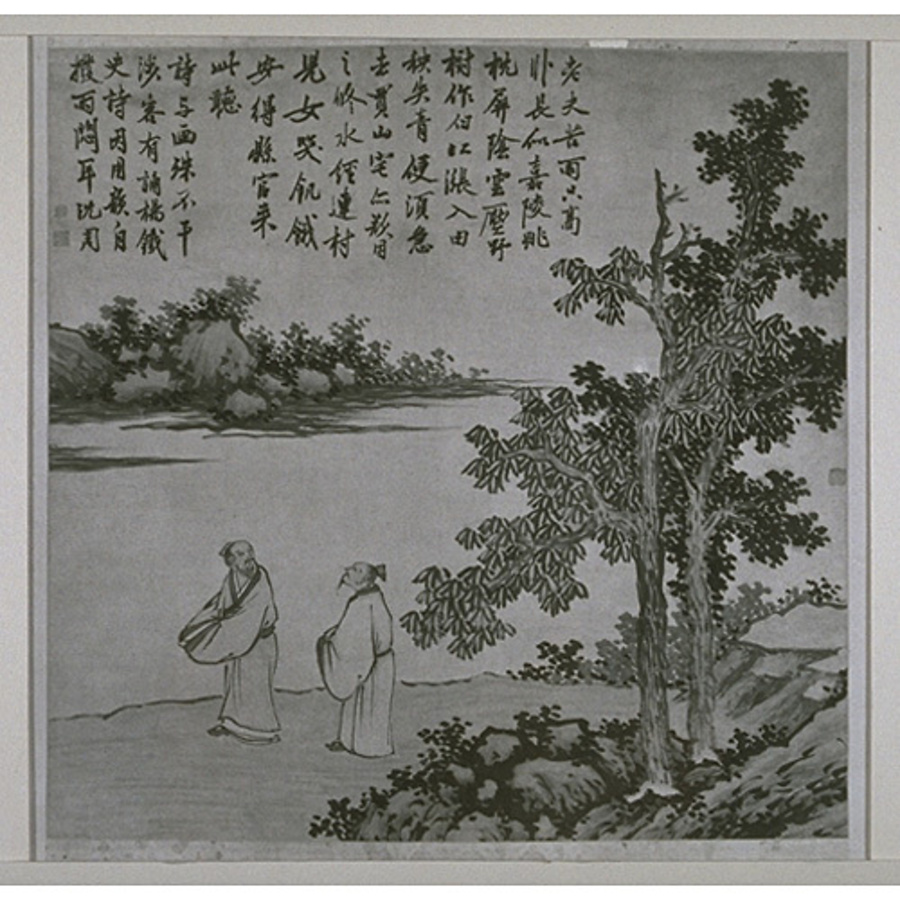 老夫苦雨只高
卧長似嘉陵眺
枕屏陰雲壓野
樹作白江漲入田
秧失青便須急
去買山宅
之修水經連村
兒女哭飢餓
安得縣官来
此聽
詩与画殊不干
涉客有誦楊鐵
史詩因用韻自
撥雨悶耳沈周